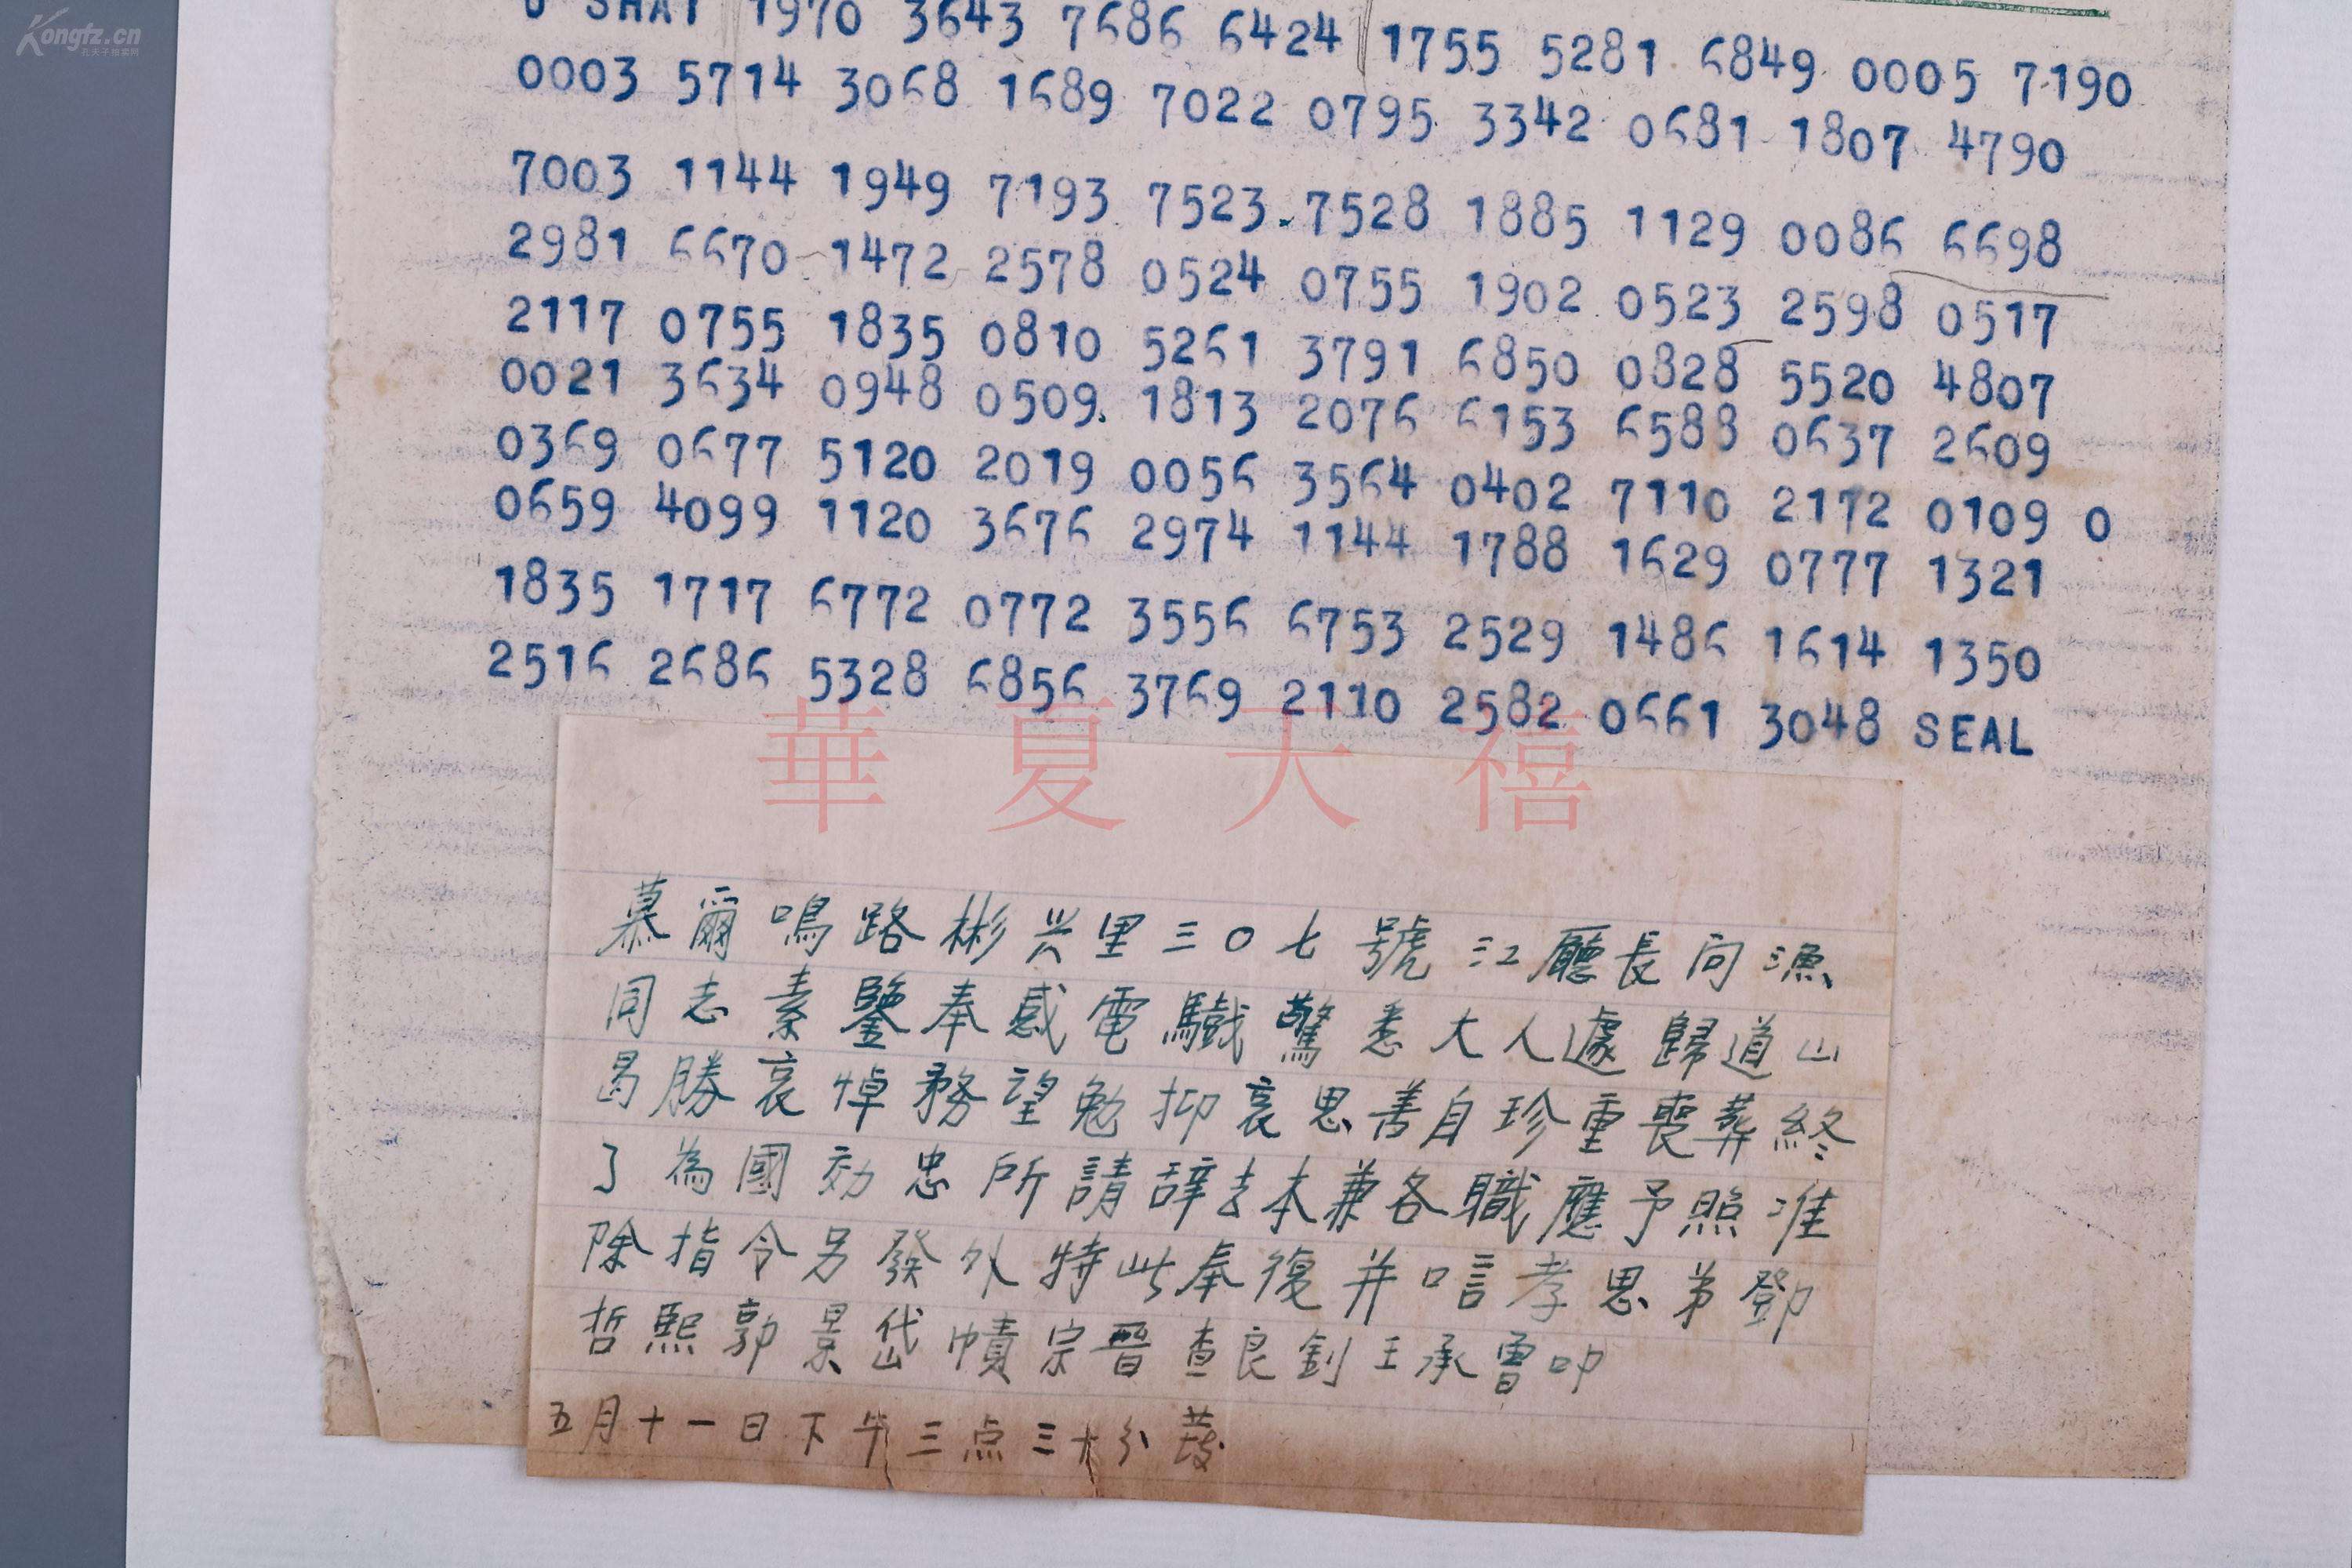 Kongfz.cn
孔夫子旧书网
SHAI 1970 3643 7686 6424 1755 5281 6849 0005 7190
0003 5714 3068 1689 7022 0795 3342 0681 1807 4790
7003 1144 1949 7193 7523 7528 1885 1129 0086 6698
2981 6670 1472 2578 0524 0755 1902 0523 2598 0517
2117 0755 1835 0810 5261 3791 6850 0828 5520 4807
0021 3634 0948 0509 1813 2076 6153 6588 0637 2609
0369 0677 5120 2019 0056 3564 0402 7110 2172 0109 0
0659 4099 1120 3676 2974 1144 1788 1629 0777 1321
1835 1717 6772 0772 3556 6753 2529 1486 1614 1350
2516 2686 5328 6856 3769 2110 2582 0661 3048 SEAL
華夏天禧
慕爾鳴路彬兴里三〇七號江廳長向漁
同志素鑒奉感電驖驚悉大人遽歸道山
曷勝哀悼務望勉抑哀思善自珍重喪葬終
了為國効忠所請辞去本兼各職應予照准
除指令另發外特此奉復并唁孝思弟鄧
哲熙郭景岱幘宗晉查良釗王承曺叩
五月十一日下午三点三十分